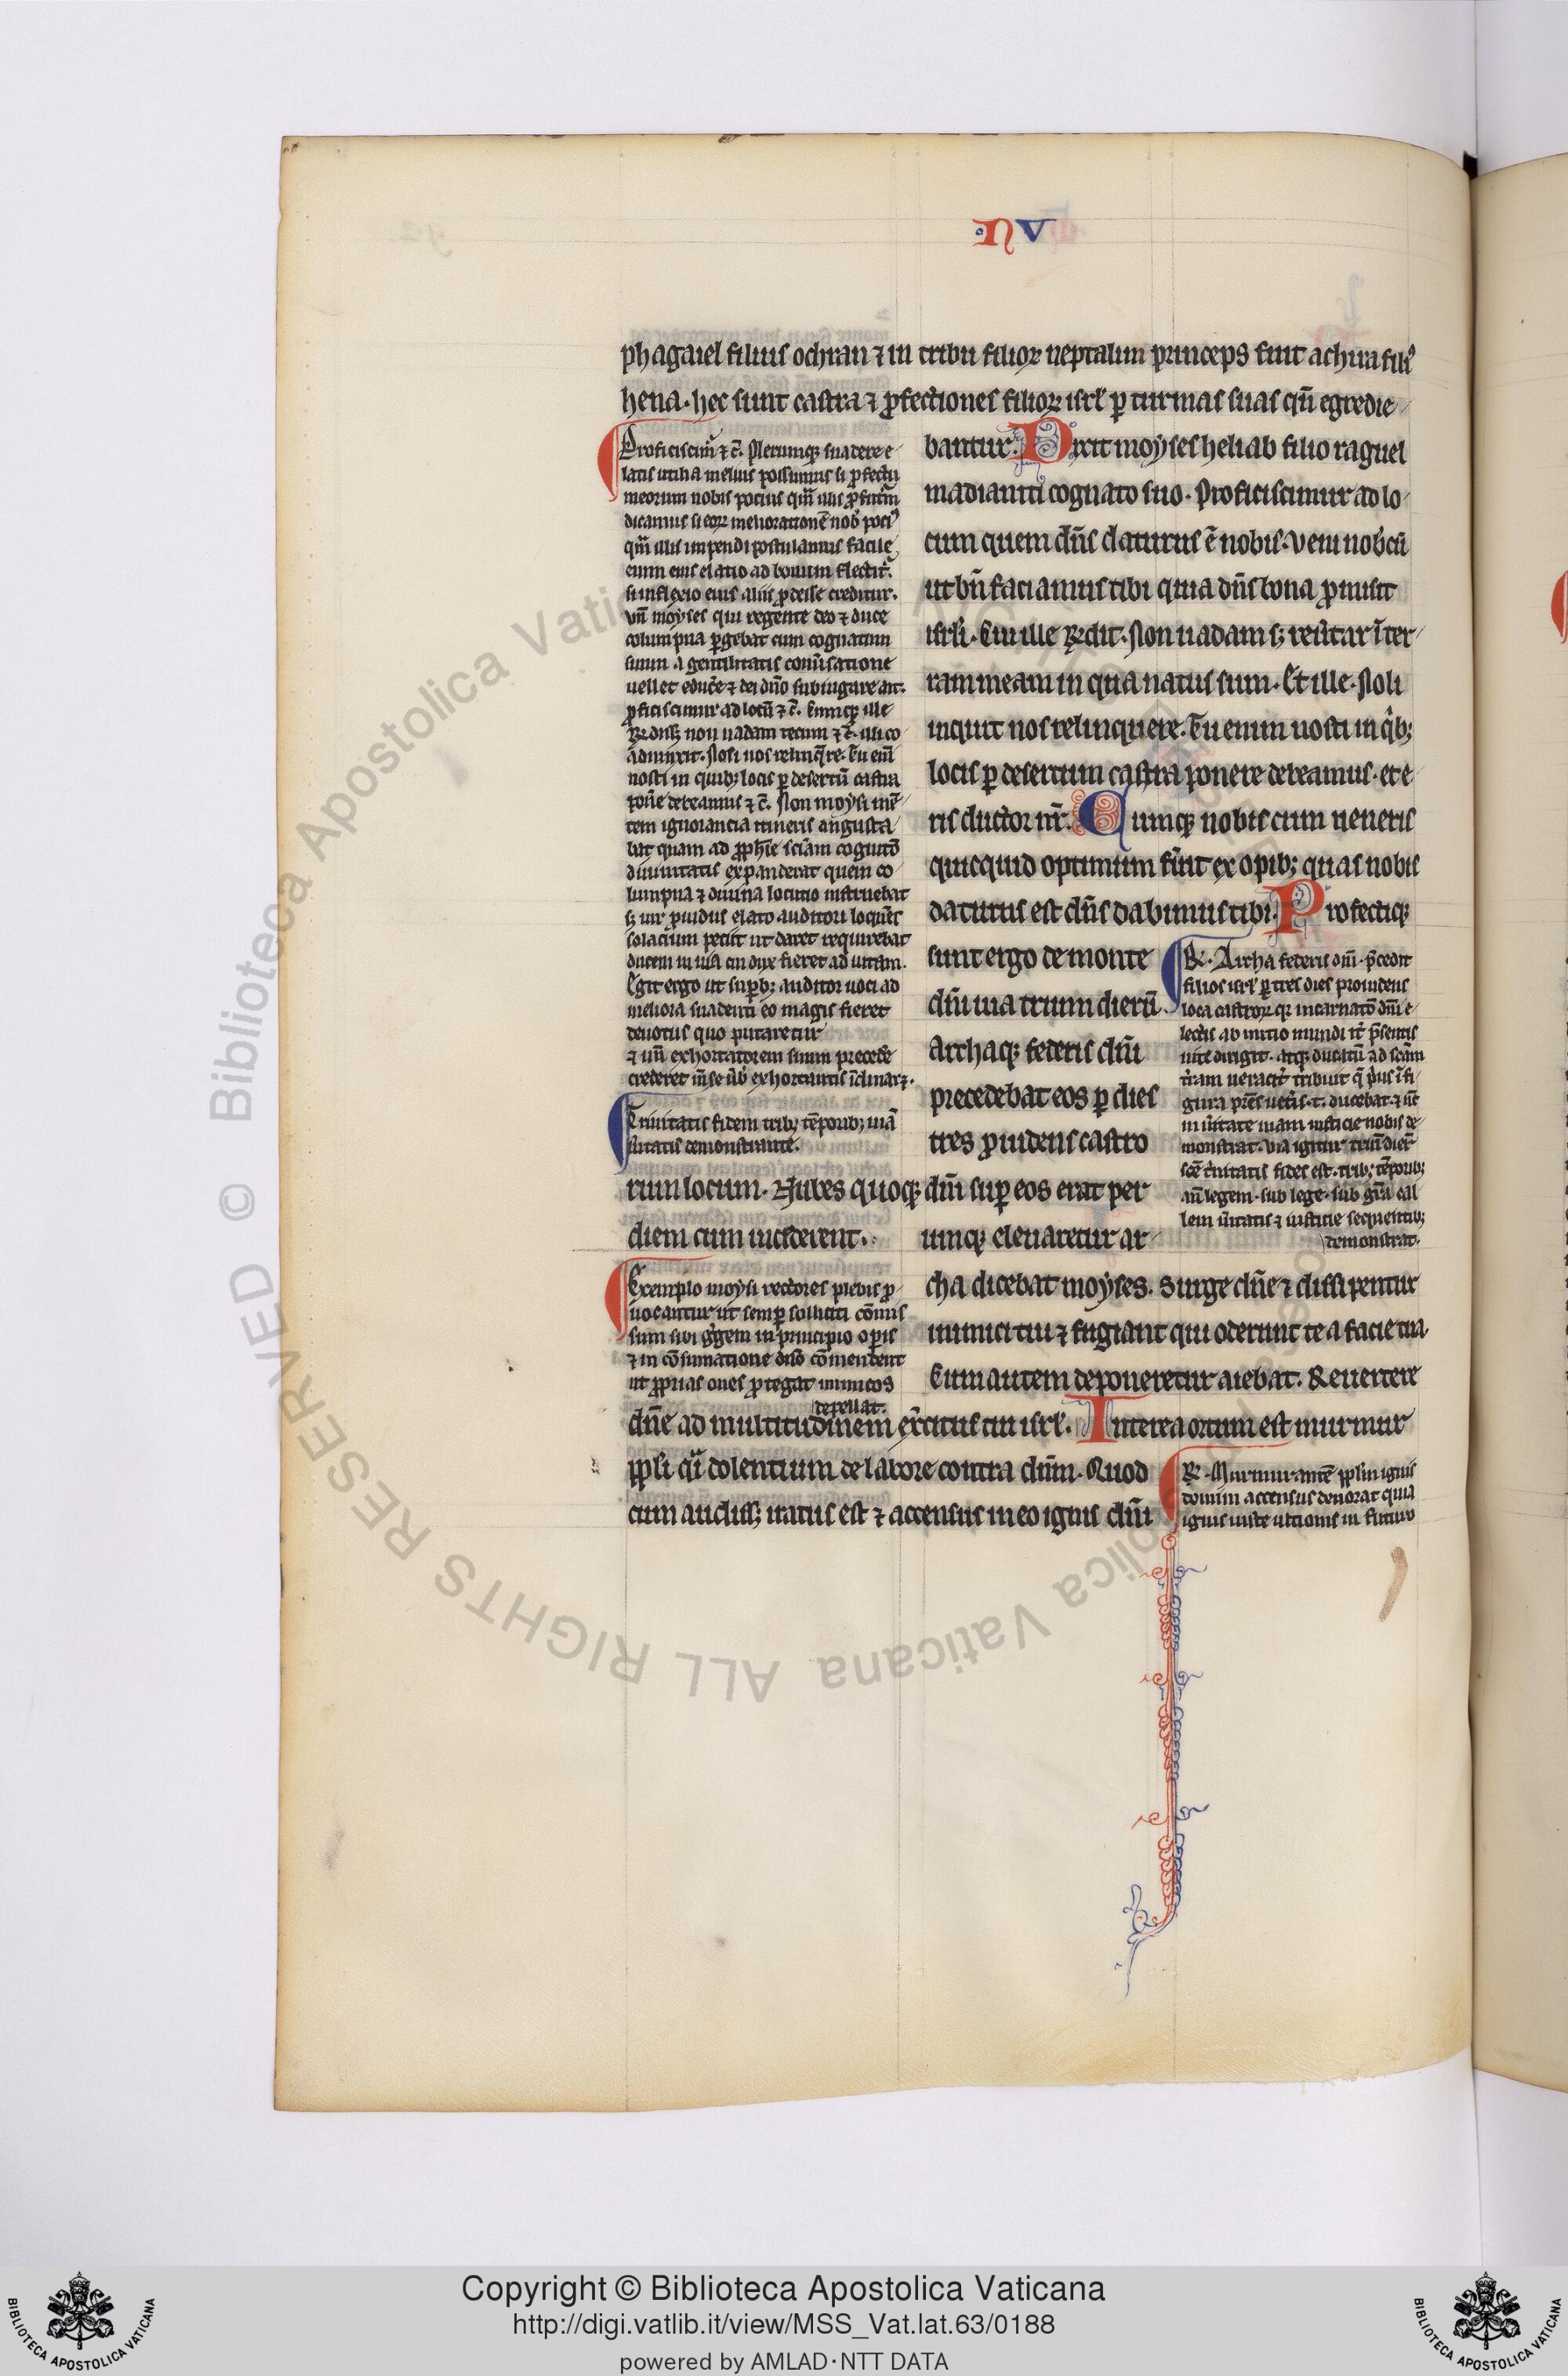 NV
phagaiel filius ochran ⁊ in tribu filioꝝ neptalim princeps fuit achira filiꝰ
hena. hec sunt castra ⁊ ꝓfectiones filioꝝ isrl̓ ꝑ turmas suas qn̄ egredie
bantur. Dixit moyses heliab filio raguel
madianiti cognato suo. Proficiscimur ad lo
cum quem dn̄s daturus ē nobis. veni nob̓cū
ut bn̄ faciamus tibi quia dn̄s bona ꝓmisit
isrl̓i. Cui ille ꝶdit. Non uadam sꝫ reũtar ī ter
ram meam in qua natus sum. Et ille. Noli
inquit nos relinquere. Tu enim nosti in qͥbꝫ
locis ꝑ desertum castra ponere debeamus. et e
ris ductor nr̄. Cumqꝫ nobiscum ueneris
quicquid optimum fũit ex opibꝫ quas nobis
daturus est dn̄s dabimus tibi. Profectiqꝫ
sunt ergo de monte
dn̄i uia trium dierū.
Archaqꝫ federis dn̄i
precedebat eos ꝑ dies
tres ꝓuidens castro
rum locum. Nubes quoqꝫ dn̄i suꝑ eos erat per
diem cum incederent. Cumqꝫ eleuaretur ar
cha dicebat moyses. Surge dn̄e ⁊ dissipentur
inimici tui ⁊ fugiant qui oderunt te a facie tua.
Cum autem deponeretur aiebat. Reuertere
dn̄e ad multitudinem ex̃citus tui isrl̓. Interea ortum est murmur
pp̄li qͣi dolentium de labore contra dn̄m. Quod
cum audissꝫ iratus est ⁊ accensus in eo ignis dn̄i
Proficiscim̃ ⁊ c̄. Plerumqꝫ suadere e
latis utilia melius possumus si ꝓfectū
meorum nobis pocius qm̄ illis ꝓfutur̄m
dicamus si eoꝝ melioratione nob̓ pociꝰ
qm̄ illis impendi postulamus facile
enim eius elatio ad bonum flectit̃.
si inflexio eius aliis ꝓdesse creditur.
vn̄ moyses qui regente deo ⁊ duce
columpna ꝑgebat cum cognatum
suum a gentilitatis conũsatione
uellet educ̃e ⁊ dei dn̄o subiugare ait.
ꝓficiscimur ad locū ⁊ c̄. Cumqꝫ ille
ꝶdissꝫ non uadam tecum ⁊ c̄. illico
adiunxit. Noli nos relinq̃re. Tu eni̅
nosti in quibꝫ locis ꝑ desertū castra
pon̄e debeamus ⁊ c̄. Non moysi mē
tem ignorancia itineris angusta
bat quam ad ꝓph̄ie sciam cognitō
diuinitatis expanderat quem co
lumpna ⁊ diuina locutio instruebat
sꝫ uir ꝓuidus elato auditori loquēs
solacium petiit ut daret requirebat
ducem in uia cui dux fieret ad uitam.
Egit ergo ut suꝑbꝫ auditor uoci ad
meliora suadenti eo magis fieret
deuotus quo putaretur
⁊ un̄ exhortatorem suum precede
crederet in se ũb̓ exhortantis īclinarꝫ.
Trinitatis fidem tribꝫ tēporibꝫ uiā
ũitatis demonstrante.
Exemplo moysi rectores plebis ꝓ
uocantur ut semꝑ solliciti cōmis
sum sibi g̃gem in principio oꝑis
⁊ in cōsumatione dn̄o cōmendent
ut ꝓprias oues ꝓtegat inimicos
repellat.
R. Archa federis dn̄i p̃cedit
filios isrl̓ ꝑ tres dies prouidens
loca castroꝝ qꝛ incarnatō dn̄i e
lectis ab initio mundi it̃ p̃sentis
uite dirigit. atqꝫ ducatū ad sc̄am
t̃ram ueracit̃ t̃ribuit q̄ p̃us ī fi
gura pr̄es uet̃is .t. ducebat. ⁊ ūt
in ũitate uiam iusticie nobis de
monstrat. Via igitur triū dier̄
sc̄e t̃initatis fides est. tribꝫ tēporibꝫ
an̄ legem. sub lege. sub gr̄a cal
lem ũitatis ⁊ iusticie sequentibꝫ
demonstrat.
R. Murmurantē pp̄lm ignis
domini accensus deuorat quia
ignis iuste ultionis in futuro
Copyright © Biblioteca Apostolica Vaticana
http://digi.vatlib.it/view/MSS_Vat.lat.63/0188
powered by AMLAD·NTT DATA
BIBLIOTECA APOSTOLICA VATICANA
BIBLIOTECA APOSTOLICA VATICANA
© Biblioteca Apostolica Vaticana ALL RIGHTS RESERVED